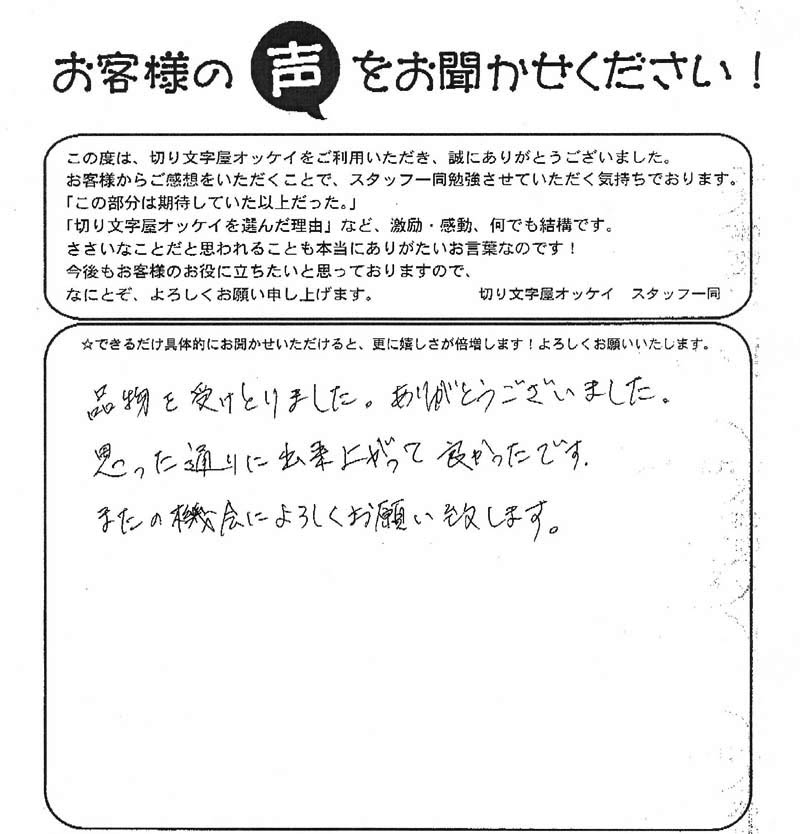 お客様の声をお聞かせください！
この度は、切り文字屋オッケイをご利用いただき、誠にありがとうございました。
お客様からご感想をいただくことで、スタッフ一同勉強させていただく気持ちでおります。
「この部分は期待していた以上だった。」
「切り文字屋オッケイを選んだ理由」など、激励・感動、何でも結構です。
ささいなことだと思われることも本当にありがたいお言葉なのです！
今後もお客様のお役に立ちたいと思っておりますので、
なにとぞ、よろしくお願い申し上げます。　切り文字屋オッケイ　スタッフ一同
☆できるだけ具体的にお聞かせいただけると、更に嬉しさが倍増します！よろしくお願いいたします。
品物を受けとりました。ありがとうございました。
思った通りに出来上がって良かったです.
またの機会によろしくお願い致します。